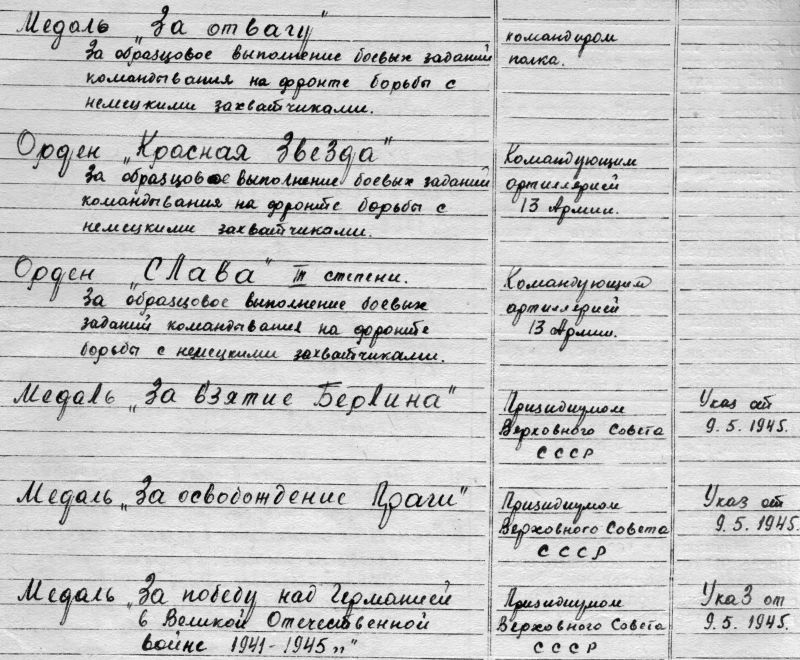 Медаль „За отвагу"
За образцовое выполнение боевых заданий
командывания на фронте борьбы с
немецкими захватчиками.
командиром
полка.
Орден „Красная Звезда"
За образцовое выполнение боевых заданий
командывания на фронте борьбы с
немецкими захватчиками.
Командующим
артиллерией
13 Армии.
Орден „Слава" III степени.
За образцовое выполнение боевых
заданий командывания на фронте
борьбы с немецкими захватчиками.
Командующим
артиллерией
13 Армии.
Медаль „За взятие Берлина"
Призидиумом
Верховного Совета
СССР
Указ от
9.5.1945.
Медаль „За освобождение Праги"
Призидиумом
Верховного Совета
СССР
Указ от
9.5.1945.
Медаль „За победу над Германией
в Великой Отечественной
войне 1941-1945„"
Призидиумом
Верховного Совета
СССР
Указ от
9.5.1945.